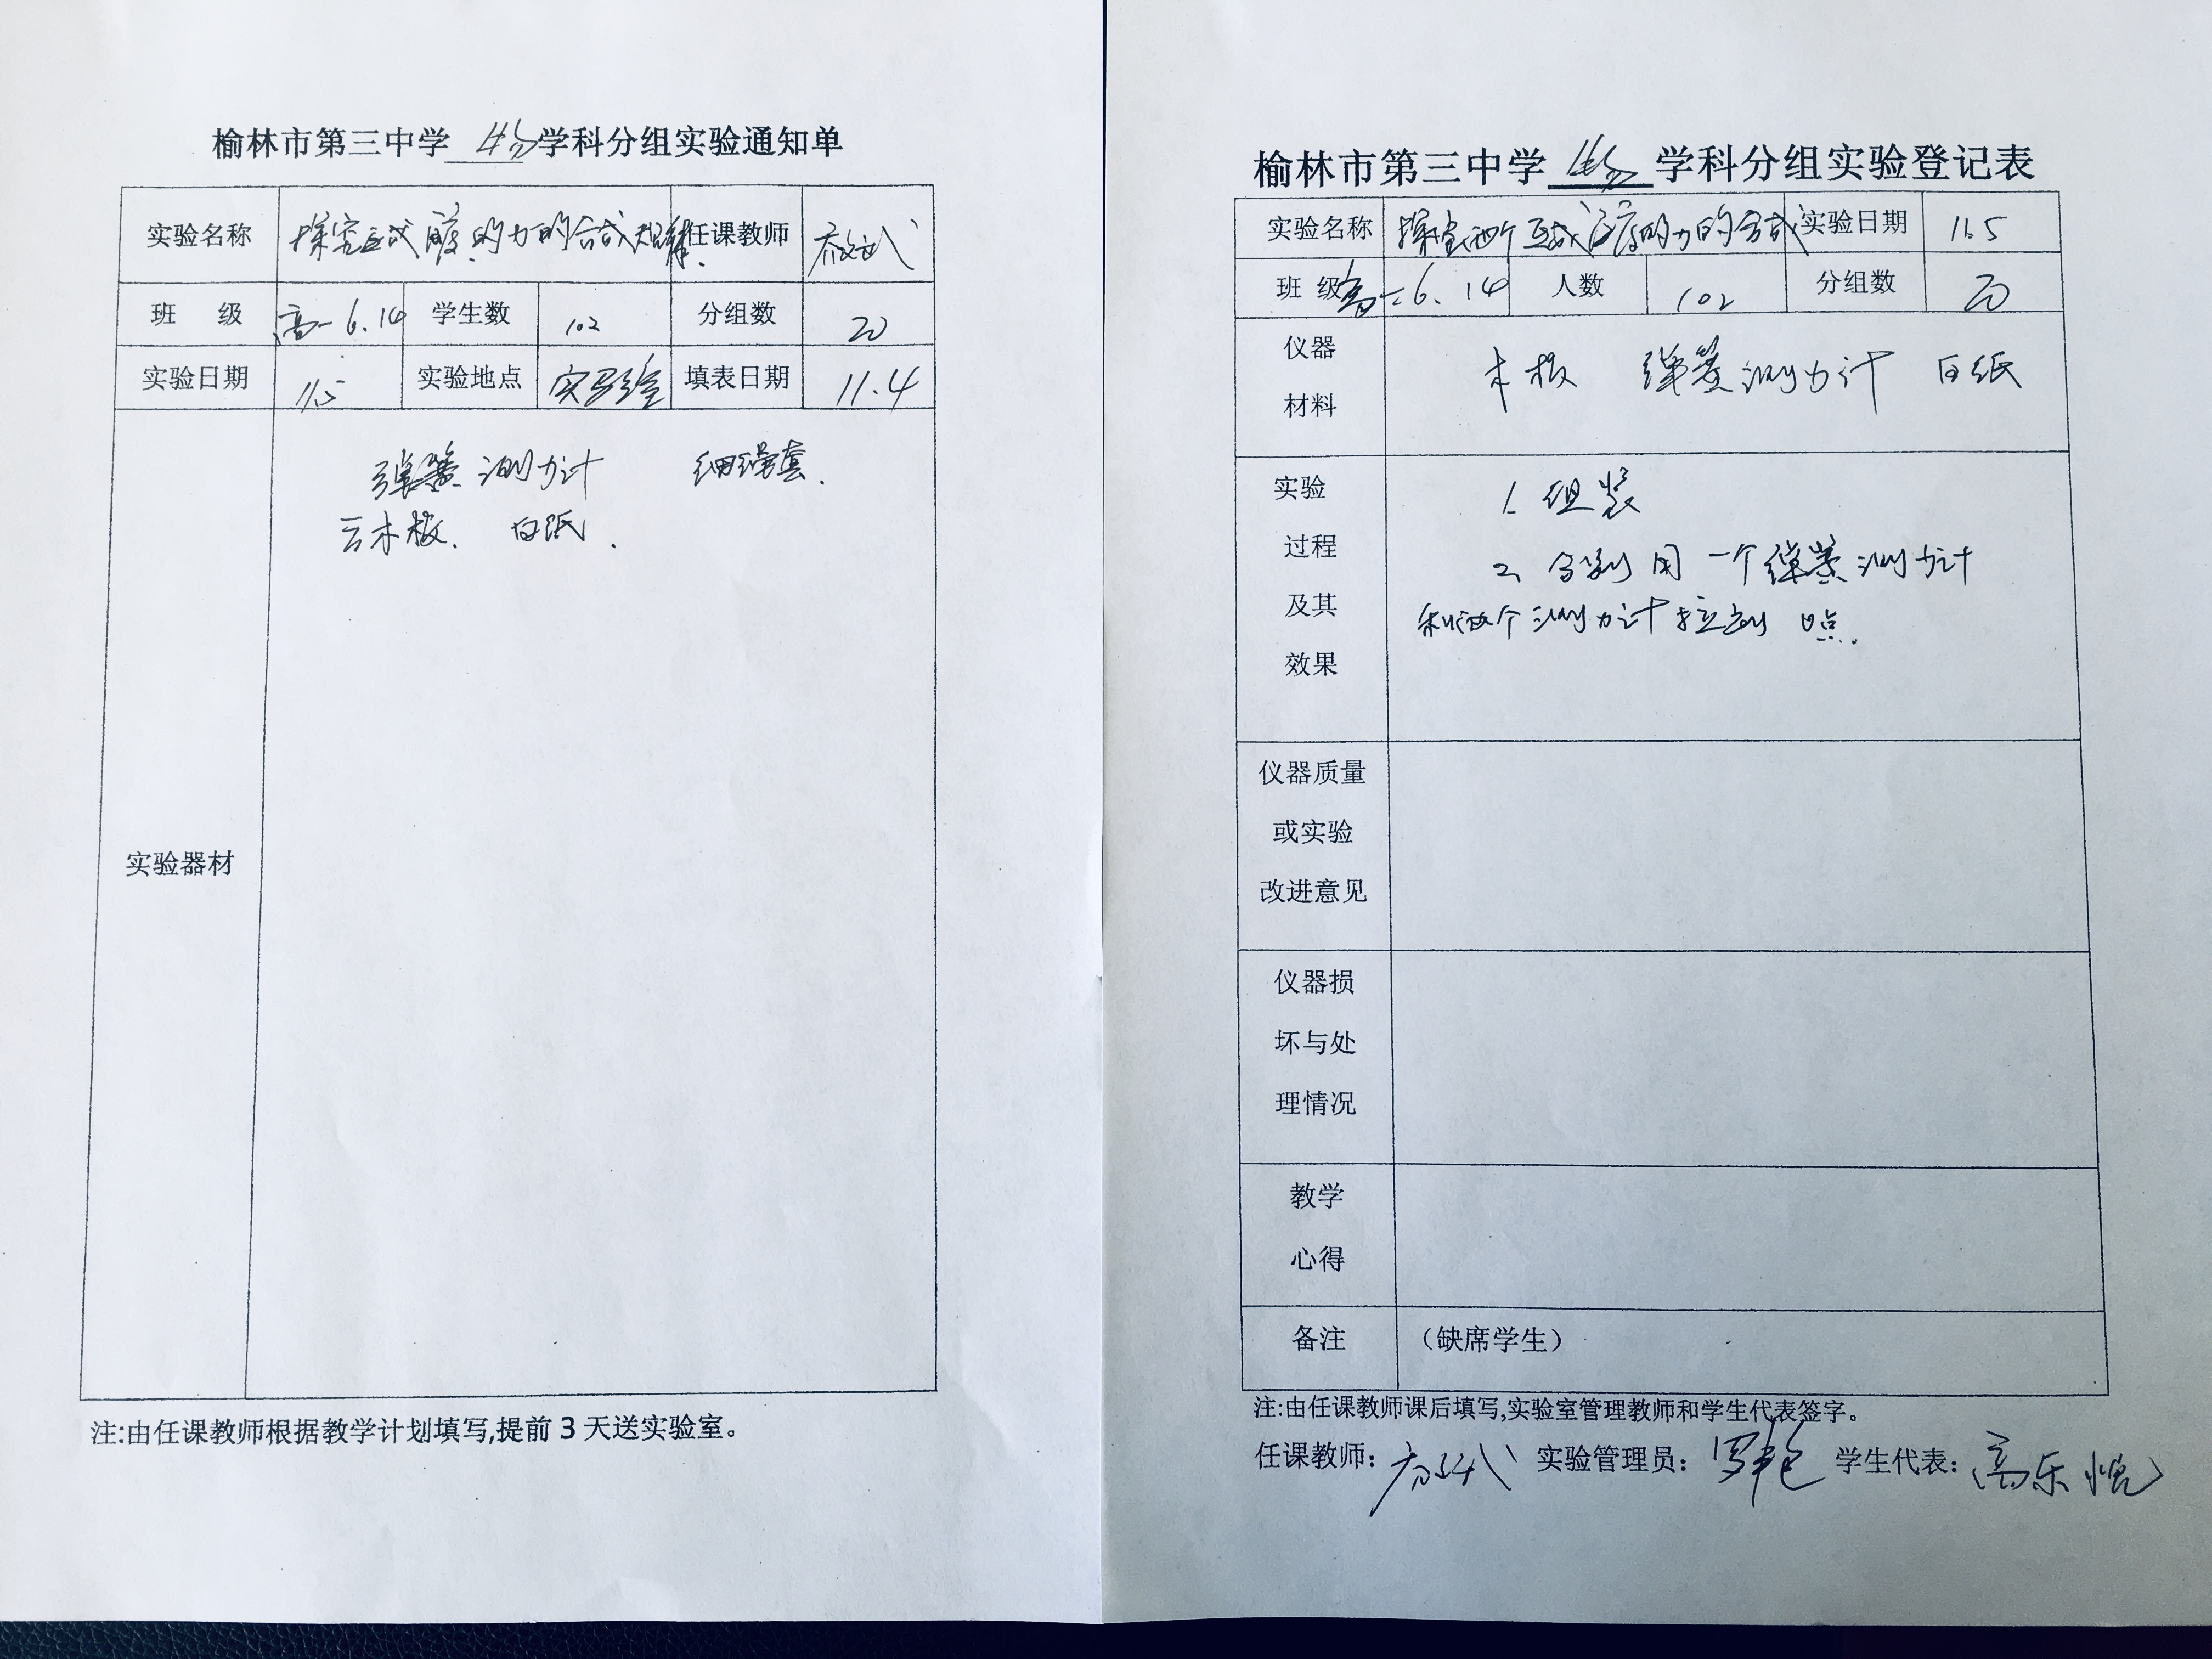 榆林市第三中学 物 学科分组实验通知单
实验名称 探究互成角度的力的合成规律. 任课教师
班 级 高一6.14 学生数 102 分组数 20
实验日期 11.5 实验地点 实验室 填表日期 11.4
实验器材
弹簧测力计 细绳套.
木板. 白纸.
注:由任课教师根据教学计划填写,提前3天送实验室。
榆林市第三中学 物 学科分组实验登记表
实验名称 探究两个互成角度的力的合成 实验日期 11.5
班 级 高一6.14 人数 102 分组数 20
仪器
材料
木板 弹簧测力计 白纸
实验
过程
及其
效果
1. 组装
2. 分别用一个弹簧测力计
和两个测力计拉到O点.
仪器质量
或实验
改进意见
仪器损
坏与处
理情况
教学
心得
备注 （缺席学生）
注:由任课教师课后填写,实验室管理教师和学生代表签字。
任课教师: 实验管理员: 学生代表: 高乐悦